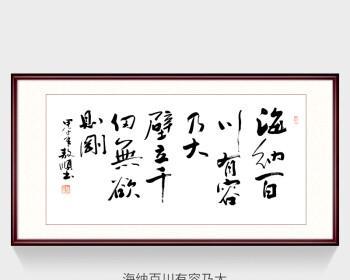 海納百
川有容
乃大
壁立千
仞無欲
則剛
海纳百川有容乃大